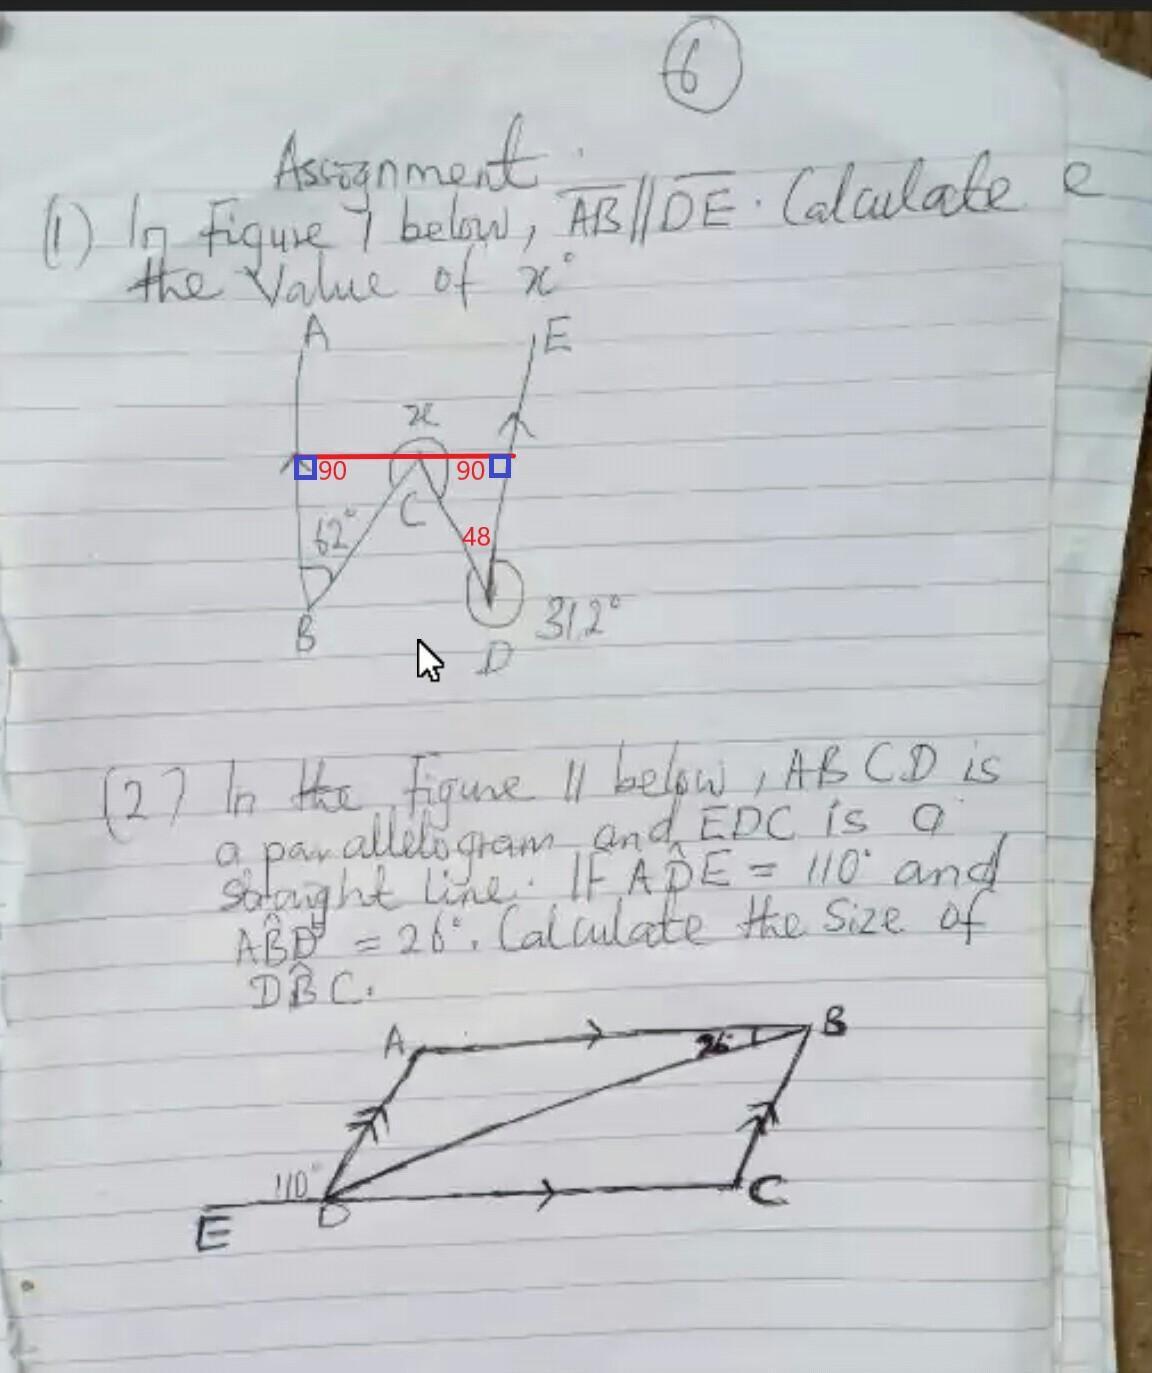 6
Assignment
(1) In Figure 7 below, AB//DE. Calculate e
the value of x°
A
E
x
90
90
C
62°
48
B
312°
D
(2) In the figure 11 below, ABCD is
a parallelogram and EDC is a
straight line. IF AD̂E = 110° and
AB̂D = 26°. Calculate the size of
DB̂C.
A
B
26
110°
E
D
C